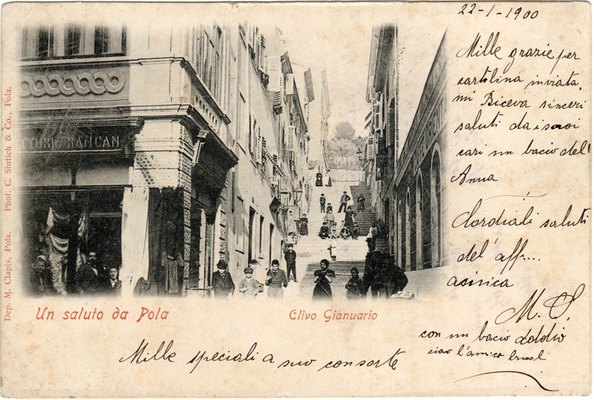 22-1-1900
Mille grazie per
cartolina inviata.
mi Riceva sinceri
saluti da i suoi
cari un bacio del'
Anna
Cordiali saluti
del' aff...
amica
M. S.
con un bacio
ciao l'amico
Mille speciali a suo consorte
Un saluto da Pola
Clivo Gianuario
Dep. M. Clapis, Pola. Phot. C. Sintich & Co., Pola.